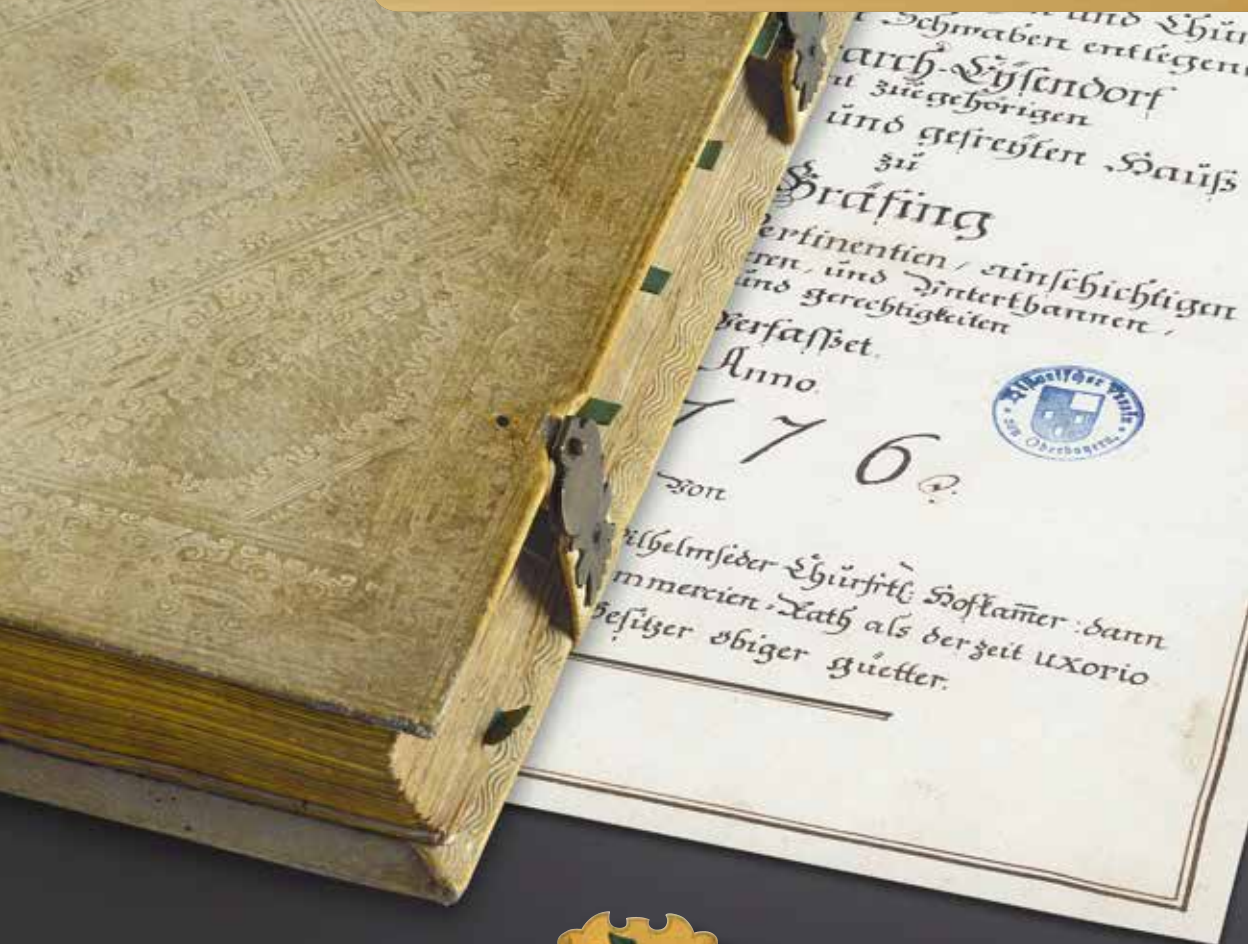 und Chür
Schwaben entlegen
arch-Eysendorf
zuegehörigen
und gefreyten Hauß
zu
Gräfing
ertinentien, ainschichtigen
ren, und Unterthannen,
und gerechtigkeiten
Verfasset.
Anno.
7 7 6
Von
ilhelmseder Chürfrtl: Hofkam̄er: dann
mmercien-Rath als derzeit uxorio
Besitzer obiger guetter.
Historischer Verein
von Oberbayern.